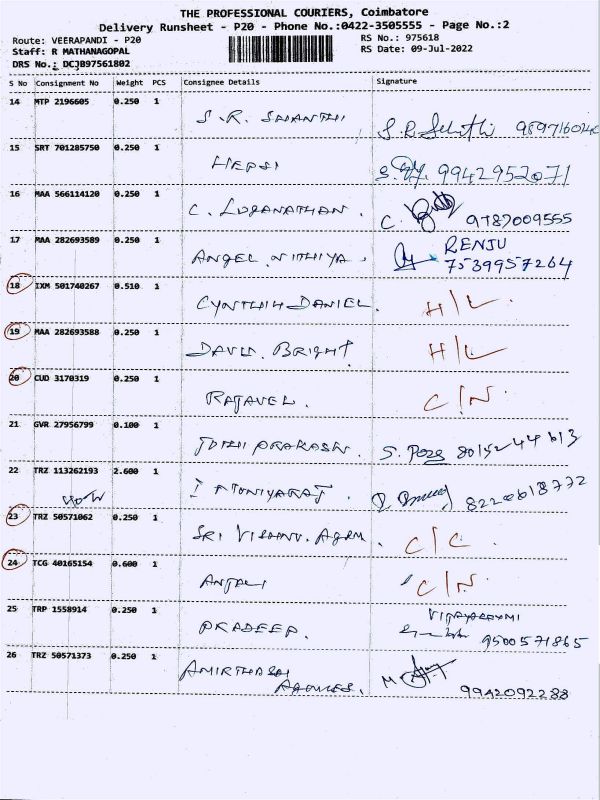 THE PROFESSIONAL COURIERS, Coimbatore
Delivery Runsheet - P20 - Phone No.:0422-3505555 - Page No.:2
Route: VEERAPANDI - P20 RS No.: 975618
Staff: R MATHANAGOPAL RS Date: 09-Jul-2022
DRS No.: DCJB97561802
S No Consignment No Weight PCS Consignee Details Signature
14 MTP 2196605 0.250 1 S. R.
15 SRT 701285750 0.250 1 HEPSI 9942952071
16 MAA 566114120 0.250 1 C. LOGANATHAN. C. 9787009555
17 MAA 282693589 0.250 1 ANGEL NITHIYA. RENJU
7539957264
18 IXM 501740267 0.510 1 CYNTHIA DANIEL. H/L
19 MAA 282693588 0.250 1 DAVID. BRIGHT H/L
20 CUD 3170319 0.250 1 RAJAVEL. C/N.
21 GVR 27956799 0.100 1 PRAKASH. S.
22 TRZ 113262193 2.600 1 I 8220618772
23 TRZ 50571062 0.250 1 SRI C/C.
24 TCG 40165154 0.600 1 ANJALI C/N.
25 TRP 1558914 0.250 1 PRADEEP. 9500571865
26 TRZ 50571373 0.250 1 M 9942092288